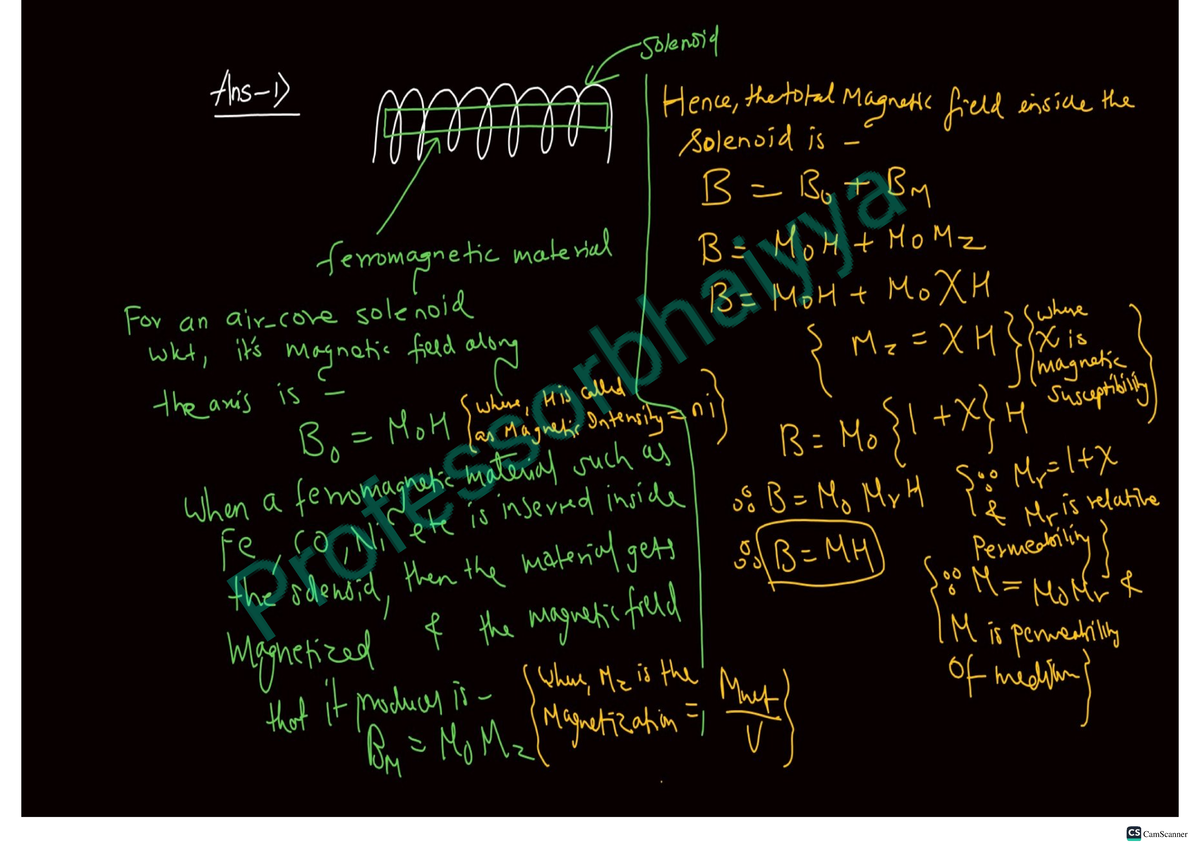 Ans-1)
Solenoid
ferromagnetic material
For an air-core solenoid
wkt, it's magnetic field along
the axis is -
B₀ = μ₀H {where, H is called
as Magnetic Intensity = ni}
When a ferromagnetic material such as
Fe, CO, Ni etc is inserred inside
the solenoid, then the material gets
Magnetized & the magnetic field
that it produces is -
B_M = μ₀M_z {where, M_z is the
Magnetization = M_net/V}
Hence, the total Magnetic field inside the
Solenoid is -
B = B₀ + B_M
B = μ₀H + μ₀M_z
B = μ₀H + μ₀XH
{M_z = XH} {where
X is
magnetic
Susceptibility}
B = μ₀{1+X}H
∴ B = μ₀μ_rH {∵ μ_r = 1+X
& μ_r is relative
Permeability}
∴ B = μH
{∵ μ = μ₀μ_r &
μ is permeability
Of medium}
Professorbhaiyya
CS CamScanner